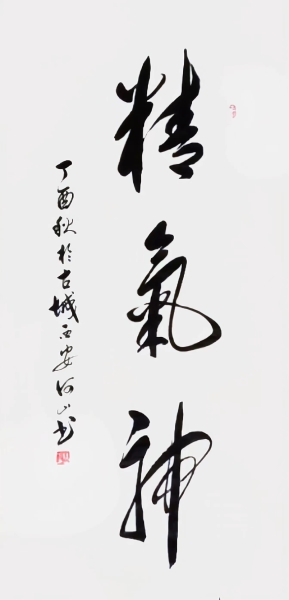 精氣神
丁酉秋於古城西安何山書